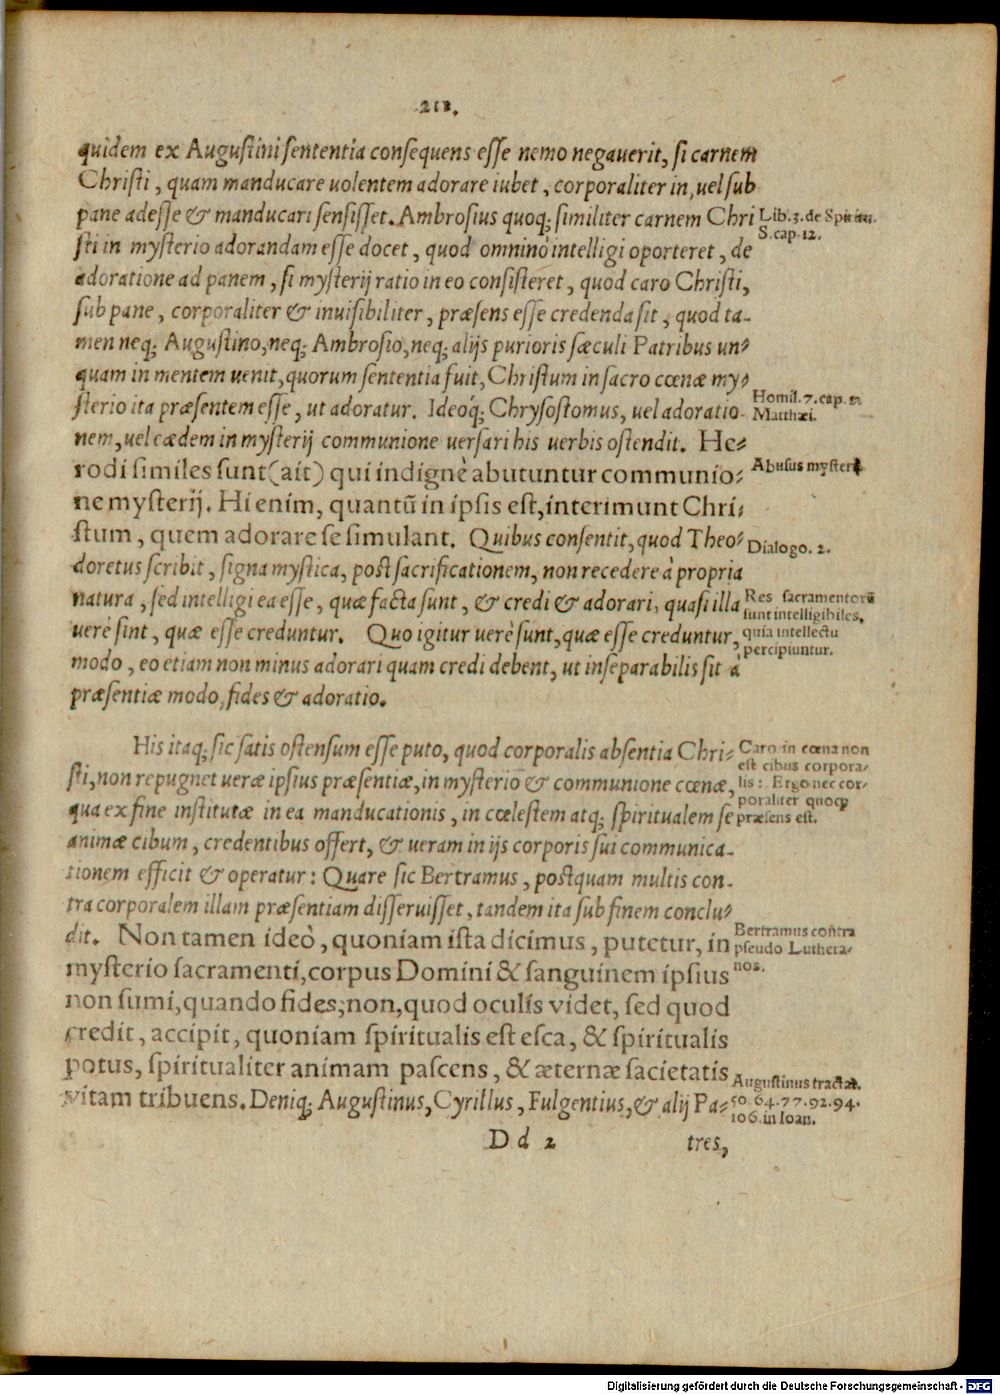 213.
quidem ex Augustini sententia consequens esse nemo negauerit, si carnem
Christi, quam manducare uolentem adorare iubet, corporaliter in, uel sub
pane adesse & manducari sensisset. Ambrosius quoq; similiter carnem Chri
Lib. 3. de Spiritu.
S. cap. 12.
sti in mysterio adorandam esse docet, quod omnino intelligi oporteret, de
adoratione ad panem, si mysterij ratio in eo consisteret, quod caro Christi,
sub pane, corporaliter & inuisibiliter, præsens esse credenda sit, quod ta-
men neq; Augustino, neq; Ambrosio, neq; alijs purioris sæculi Patribus un-
quam in mentem uenit, quorum sententia fuit, Christum in sacro cœnæ my-
sterio ita præsentem esse, ut adoratur. Ideoq́; Chrysostomus, uel adoratio-
Homil. 7. cap. 2.
Matthæi.
nem, uel eædem in mysterij communione uersari his uerbis ostendit. He-
rodi similes sunt (ait) qui indignè abutuntur communio-
Abusus mysterij.
ne mysterij. Hi enim, quantũ in ipsis est, interimunt Chri-
stum, quem adorare se simulant. Quibus consentit, quod Theo-
Dialogo. 2.
doretus scribit, signa mystica, post sacrificationem, non recedere à propria
natura, sed intelligi ea esse, quæ facta sunt, & credi & adorari, quasi illa
Res sacramentorũ
sunt intelligibiles,
uerè sint, quæ esse creduntur. Quo igitur uerè sunt, quæ esse creduntur,
quia intellectu
percipiuntur.
modo, eo etiam non minus adorari quam credi debent, ut inseparabilis sit à
præsentiæ modo, fides & adoratio.
His itaq; sic satis ostensum esse puto, quod corporalis absentia Chri-
Caro in cœna non
est cibus corpora-
sti, non repugnet ueræ ipsius præsentiæ, in mysterio & communione cœnæ,
lis: Ergo nec cor-
poraliter quoq;
præsens est.
qua ex fine institutæ in ea manducationis, in cœlestem atq; spiritualem se
animæ cibum, credentibus offert, & ueram in ijs corporis sui communica-
tionem efficit & operatur: Quare sic Bertramus, postquam multis con-
tra corporalem illam præsentiam disseruisset, tandem ita sub finem conclu-
dit. Non tamen ideò, quoniam ista dicimus, putetur, in
Bertramus contra
pseudo Luthera-
nos.
mysterio sacramenti, corpus Domini & sanguinem ipsius
non sumi, quando fides, non, quod oculis videt, sed quod
credit, accipit, quoniam spiritualis est esca, & spiritualis
potus, spiritualiter animam pascens, & æternæ sacietatis
Augustinus tractat.
50. 64. 77. 92. 94.
106. in Ioan.
vitam tribuens. Deniq; Augustinus, Cyrillus, Fulgentius, & alij Pa-
D d 2
tres,
Digitalisierung gefördert durch die Deutsche Forschungsgemeinschaft - DFG